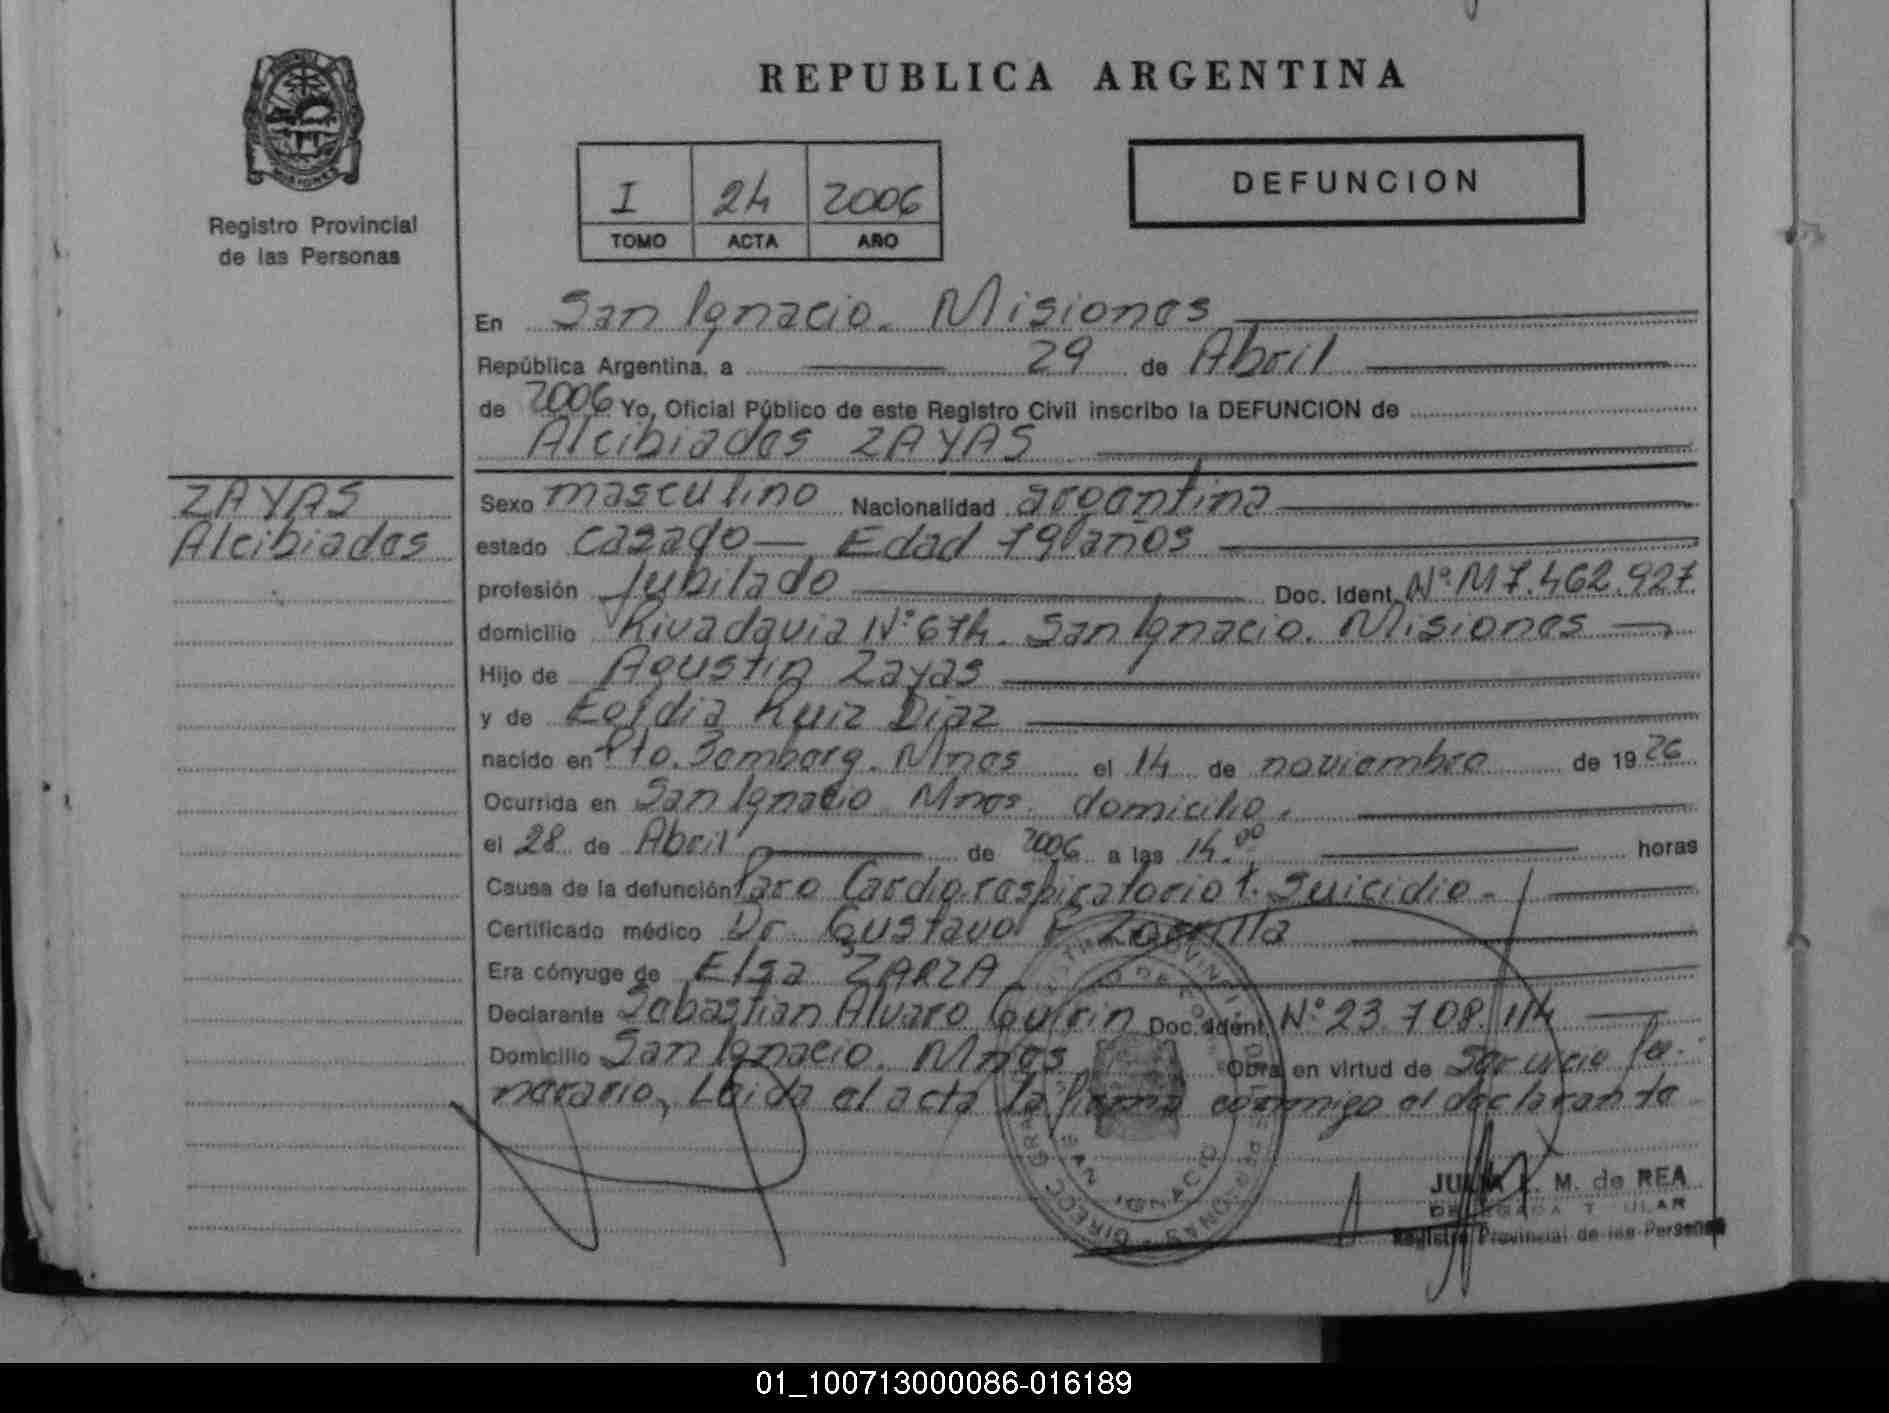 REPUBLICA ARGENTINA
MISIONES
Registro Provincial
de las Personas
I 24 2006
TOMO ACTA AÑO
DEFUNCION
En San Ignacio. Misiones
República Argentina, a 29 de Abril
de 2006 Yo, Oficial Público de este Registro Civil inscribo la DEFUNCION de
Alcibiades ZAYAS
ZAYAS
Alcibiades
Sexo masculino Nacionalidad argentina
estado casado — Edad 79 años
profesión Jubilado Doc. Ident. Nº M7.462.927
domicilio Rivadavia Nº 674. San Ignacio. Misiones
Hijo de Agustin Zayas
y de Ruiz Diaz
nacido en Pto. Mnes el 14 de noviembre de 1926
Ocurrida en San Ignacio Mnes. domicilio.
el 28 de Abril de 2006 a las 14.00 horas
Causa de la defunción Paro Cardiorespiratorio t. Suicidio -
Certificado médico Dr. Gustavo F Zorrilla
Era cónyuge de Elsa ZARZA
Declarante Sebastian Alvaro Doc. Ident. Nº 23.708.114
Domicilio San Ignacio. Mnes Obra en virtud de Servicio fu-
nerario, Leida el acta la firma conmigo el declarante
SAN IGNACIO
JULIA M. de REA
DELEGADA TITULAR
Registro Provincial de las Personas
01_100713000086-016189